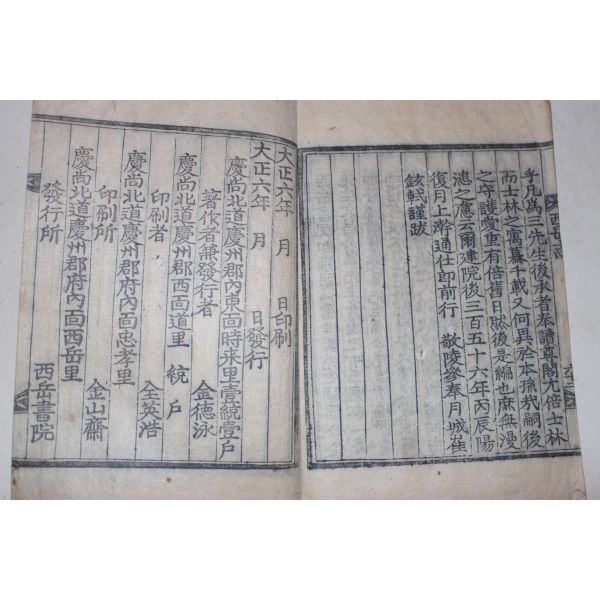 乎凡爲三先生後承者奉讀尊閣尤倍士林
而士林之寓慕千載又何異於本孫哉嗣後
之守護愛重有倍舊日然後是編也庶無漫
漶之慮云爾建院後三百五十六年丙辰陽
復月上澣通仕郎前行 敬陵參奉月城崔
鉉軾謹跋
大正六年 月 日印刷
大正六年 月 日發行
慶尚北道慶州郡內東面時来里壹統壹戶
著作者兼發行者 金德泳
慶尚北道慶州郡西面道里 統 戶
印刷者 全英浩
慶尚北道慶州郡府內面忠孝里
印刷所 金山齋
慶尚北道慶州郡府內面西岳里
發行所 西岳書院